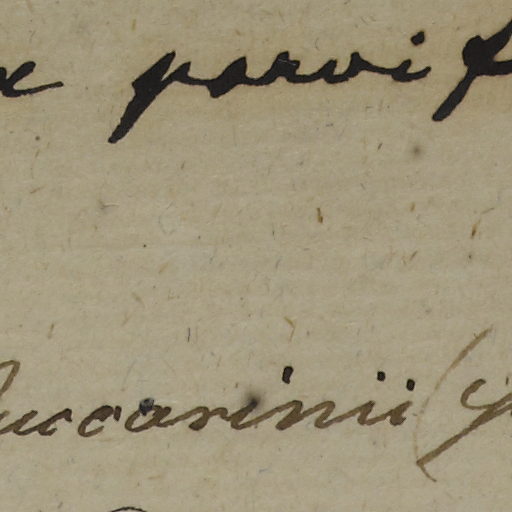 e parvif
uccarinii (